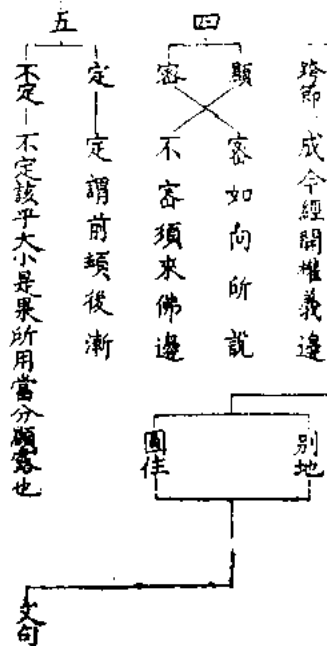 跨節 成今經開權義邊
四
顯 密如向所說
密 不密須來佛邊
五
定 定謂前頓後漸
不定 不定該乎大小是果所用當分顯露也
別地
圓住
文句